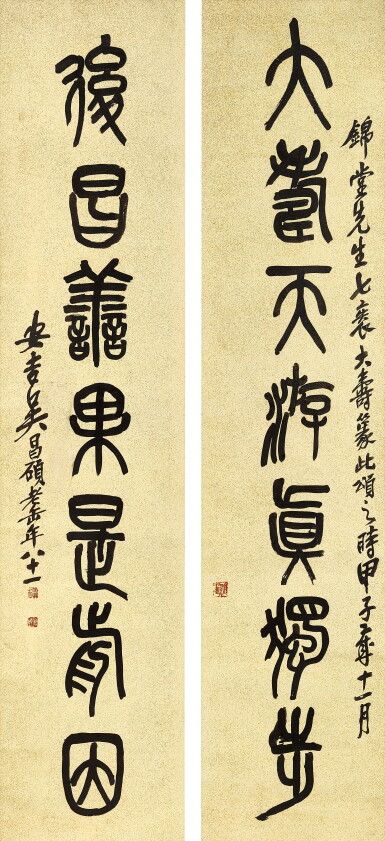 錦堂先生七袠大壽篆此頌之時甲子歲十一月
大耋天游眞獨步
後昌譱果是歬因
安吉吳昌碩老缶年八十一